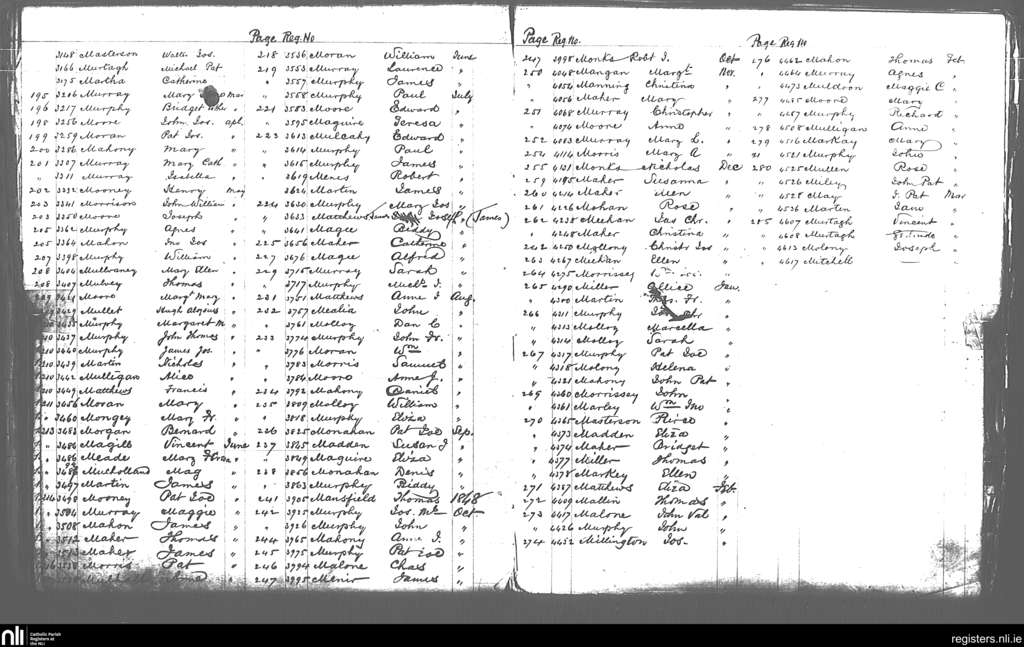 Page Reg.No
3148 Masterson Walter Jos.
3166 Murtagh Michael Pat
3175 Martha Catherine
195 3216 Murray Mary Mar
196 3217 Murphy Bridget
198 3256 Moore John Jos. apl.
199 3259 Moran Pat Jos. "
200 3286 Mahony Mary "
201 3307 Murray Mary Cath "
" 3311 Murray Isabella "
202 3322 Mooney Henry May
203 3341 Morrison John William "
203 3350 Moore Joseph "
205 3362 Murphy Agnes "
205 3364 Mahon Jno Jos "
207 3398 Murphy William "
208 3404 Mulvaney Mary Ellen "
208 3407 Mulvey Thomas "
209 3421 Moore Margt Mary "
3429 Mullet Hugh Aloysius "
3433 Murphy Margaret M. "
210 3437 Murphy John Thomas "
210 3440 Murphy James Jos. "
210 3439 Martin Nicholas "
210 3442 Mulligan Alice "
210 3449 Matthews Francis "
211 3456 Moran Mary "
" 3460 Mongey Mary Fr. "
213 3483 Morgan Bernard "
" 3486 Magill Vincent June
" 3486 Meade Mary "
" Mulholland Mag "
" 3497 Martin James "
214 3498 Mooney Pat Joe "
" 3504 Murray Maggie "
" 3508 Mahon James "
" 3512 Maher Thomas "
" 3513 Maher James "
3538 Morris Pat "
218 3536 Moran William June
219 3553 Murray Laurence "
" 3557 Murphy James "
" 3558 Murphy Paul July
221 3583 Moore Edward "
" 3595 Maguire Teresa "
223 3613 Mulcahy Edward "
" 3614 Murphy Paul "
" 3615 Murphy James "
" 3619 Menes Robert "
" 3624 Martin James "
224 3630 Murphy Mary Jos "
" 3633 Matthews Joseph (James)
" 3641 Magee Biddy "
225 3656 Maher Catherine "
227 3676 Magee Alfred "
229 3715 Murray Sarah "
" 3717 Murphy Michl J. "
231 3751 Matthews Anne J Aug.
232 3757 Mealia John "
" 3761 Molloy Dan C "
233 3774 Murphy John Fr. "
" 3776 Moran Wm "
" 3783 Morris Samuel "
" 3784 Moore Anne J. "
234 3792 Mahony Daniel "
235 3809 Molloy William "
" 3818 Murphy Eliza "
236 3825 Monahan Pat Joe Sep.
237 3845 Madden Susan J "
" 3849 Maguire Eliza "
238 3856 Monahan Denis "
" 3863 Murphy Biddy "
241 3905 Mansfield Thomas 1848
242 3925 Murphy Jos. Oct
" 3926 Murphy John "
244 3965 Mahony Anne J. "
245 3975 Murphy Pat Joe "
246 3994 Malone Chas "
247 3995 Menir James "
Page Reg.No.
247 3998 Monks Robt J. Oct
250 4048 Mangan Margt Nov.
" 4054 Manning Christina "
" 4056 Maher Mary "
251 4068 Murray Christopher "
" 4076 Moore Anne "
252 4083 Murray Mary C. "
254 4114 Morris Mary A "
255 4131 Monks Nicholas Dec
259 4195 Maher Susanna "
260 4214 Maher Ellen "
261 4226 Mohan Rose "
262 4238 Meehan Jas Chr. "
" 4248 Maher Christina "
262 4250 Mollony Christr Jos "
263 4267 Meehan Ellen "
264 4275 Morrissey "
265 4290 Miller Allice Jan.
" 4300 Martin Thos. Fr. "
266 4311 Murphy "
" 4313 Molloy Marcella "
" 4314 Molloy Sarah "
267 4317 Murphy Pat Joe "
" 4318 Molony Helena "
" 4321 Mahony John Pat "
269 4360 Morrissey John "
" 4361 Marley Wm Jno "
270 4365 Masterson Pierce "
" 4373 Madden Eliza "
" 4374 Maher Bridget "
" 4377 Miller Thomas "
" 4378 Markey Ellen "
271 4387 Matthews Eliza Feb.
272 4409 Mallin Thomas "
273 4417 Malone John Val "
" 4426 Murphy John "
274 4432 Millington Jos. "
Page Reg No
276 4462 Mahon Thomas Feb.
" 4464 Murray Agnes "
" 4473 Muldoon Maggie C "
277 4485 Moore Mary "
" 4487 Murphy Richard "
278 4508 Mulligan Anne "
279 4516 MacKay Mary "
" 4521 Murphy John "
280 4525 Mullen Rose "
" 4526 Miley John Pat "
" 4528 May J. Pat Mar
" 4536 Martin Jane "
285 4607 Murtagh Vincent "
" 4608 Murtagh Gertrude "
" 4613 Molony Joseph "
" 4617 Mitchell — "
nli Catholic Parish Registers at the NLI
registers.nli.ie